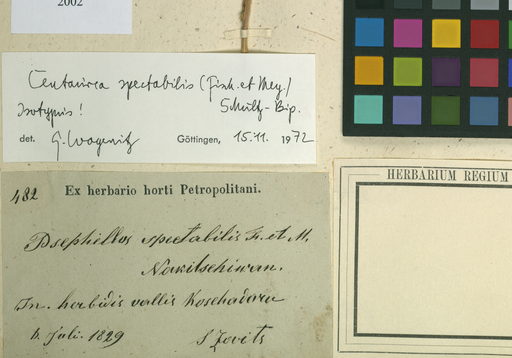 2002
Centaurea spectabilis (Fisch. et Mey.)
Schultz-Bip.
Isotypus!
det. G. Wagenitz Göttingen, 15.11. 1972
482 Ex herbario horti Petropolitani.
Psephellus spectabilis F. et M.
Nakitschiwan.
In herbidis vallis Koschadara
6. Juli. 1829 Szovits
HERBARIUM REGIUM